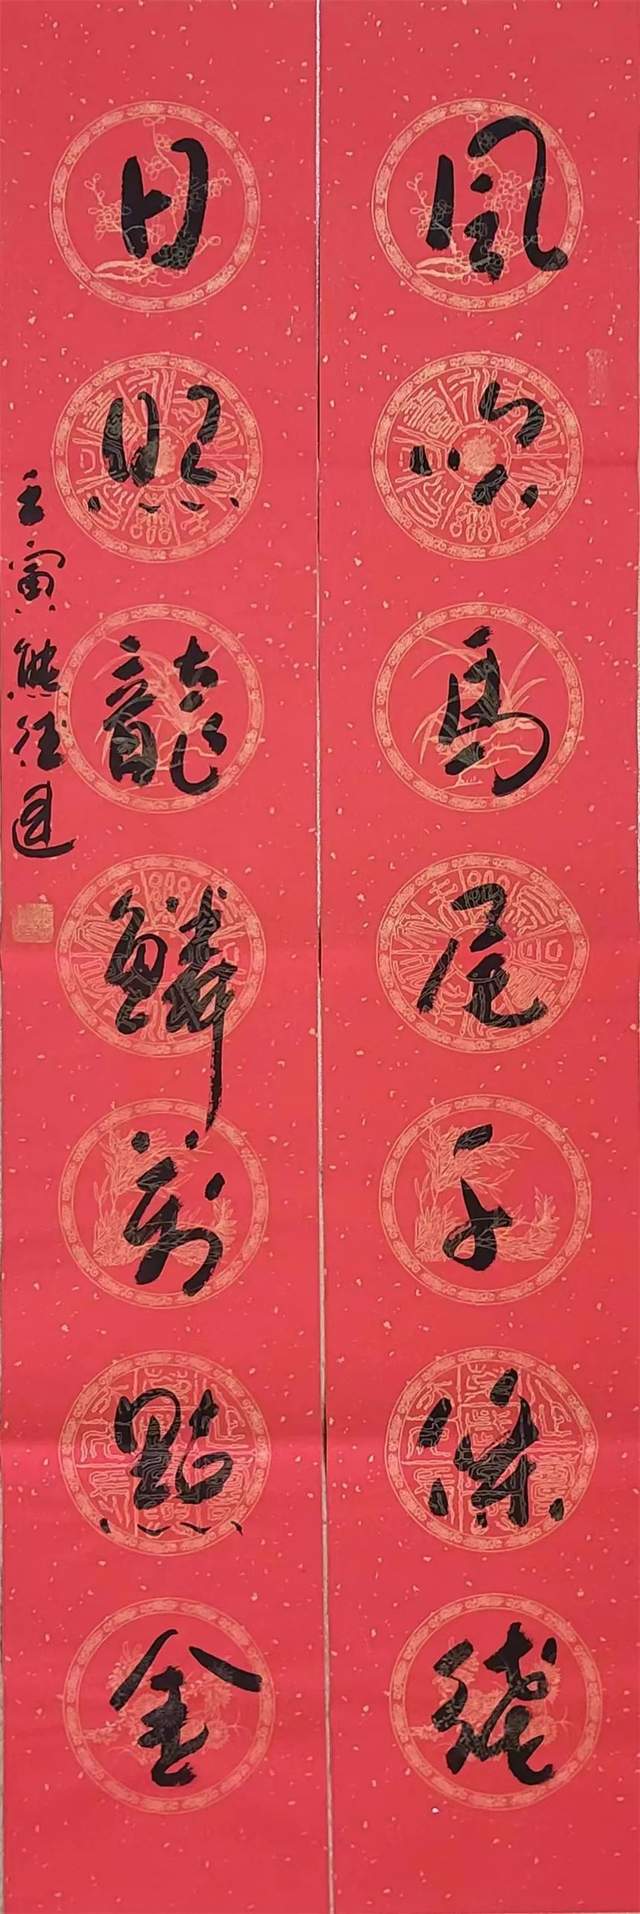 風吹馬尾千條綫
日照龍鱗萬點金
壬寅熊建